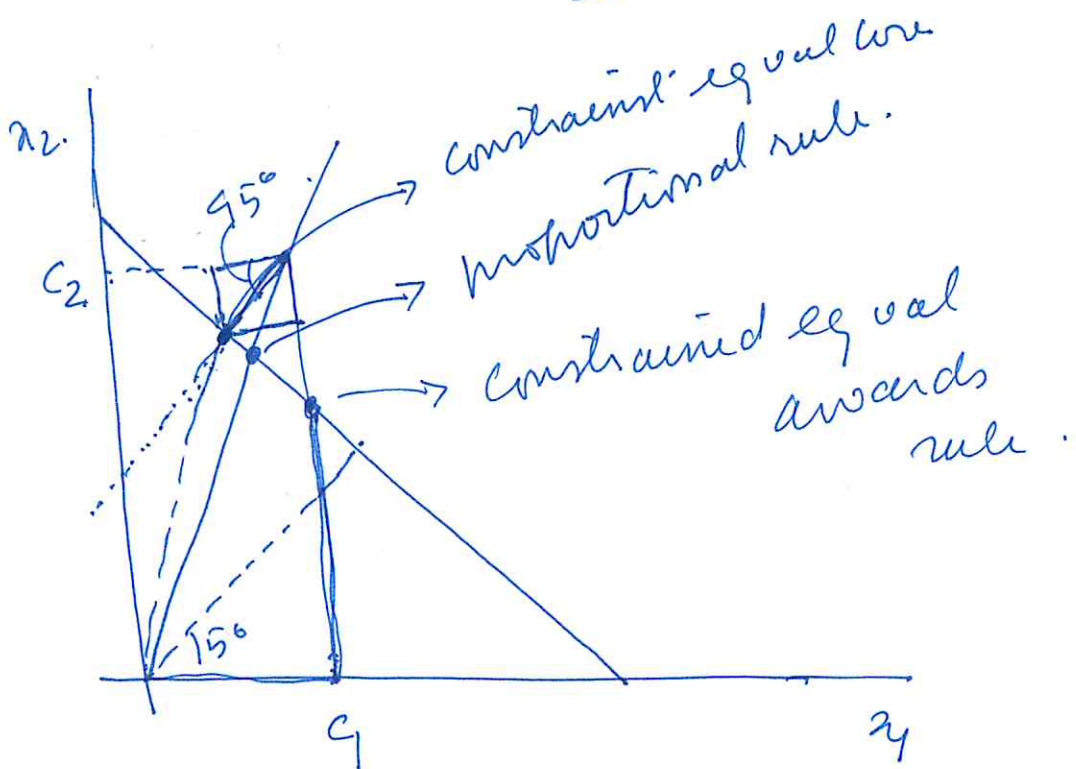 x2.
constrainst equal loss
proportional rule.
45°
C2
constrained equal
awards
rule.
45°
C1
x1